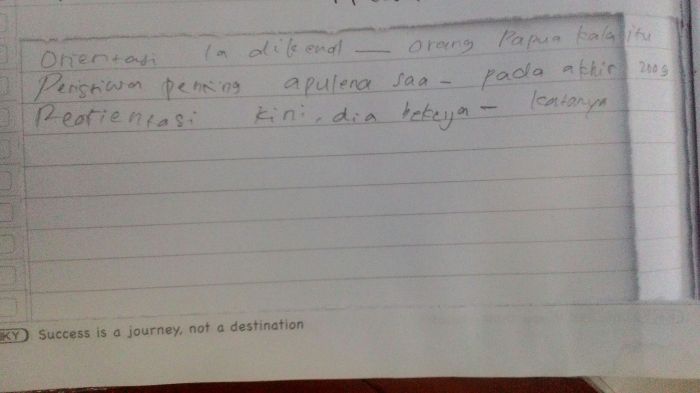 Orientasi Ia dikenal — orang Papua kala itu
Peristiwa penting apulena saa - pada akhir 2009
Reorientasi kini, dia bekerja - katanya
KY Success is a journey, not a destination